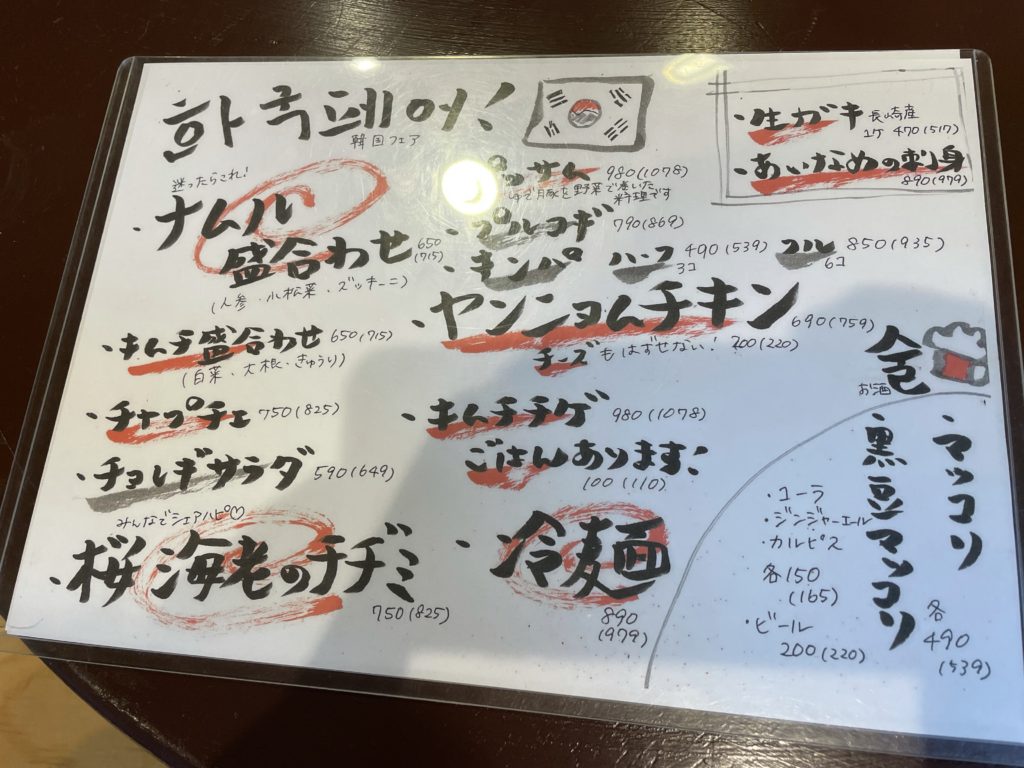 한국페어!
韓国フェア
迷ったらこれ!
・ナムル
盛合わせ 650
(715)
(人参・小松菜・ズッキーニ)
・キムチ盛合わせ 650(715)
(白菜・大根・きゅうり)
・チャプチェ 750(825)
・チョレギサラダ 590(649)
みんなでシェアハピ♡
・桜海老のチヂミ
750(825)
ッサム 980(1078)
ゆで豚を野菜で巻いた
料理です
・プルコギ 790(869)
・キンパ ハーフ 490(539) フル 850(935)
3コ 6コ
・ヤンニョムチキン 690(759)
チーズもはずせない! 200(220)
・キムチチゲ 980(1078)
ごはんあります!
100(110)
・冷麺
890
(979)
・生ガキ 長崎産
1ケ 470(517)
・あいなめの刺身
890(979)
お酒
・マッコリ
・黒豆マッコリ
各
490
(539)
・コーラ
・ジンジャーエール
・カルピス
各150
(165)
・ビール
200(220)